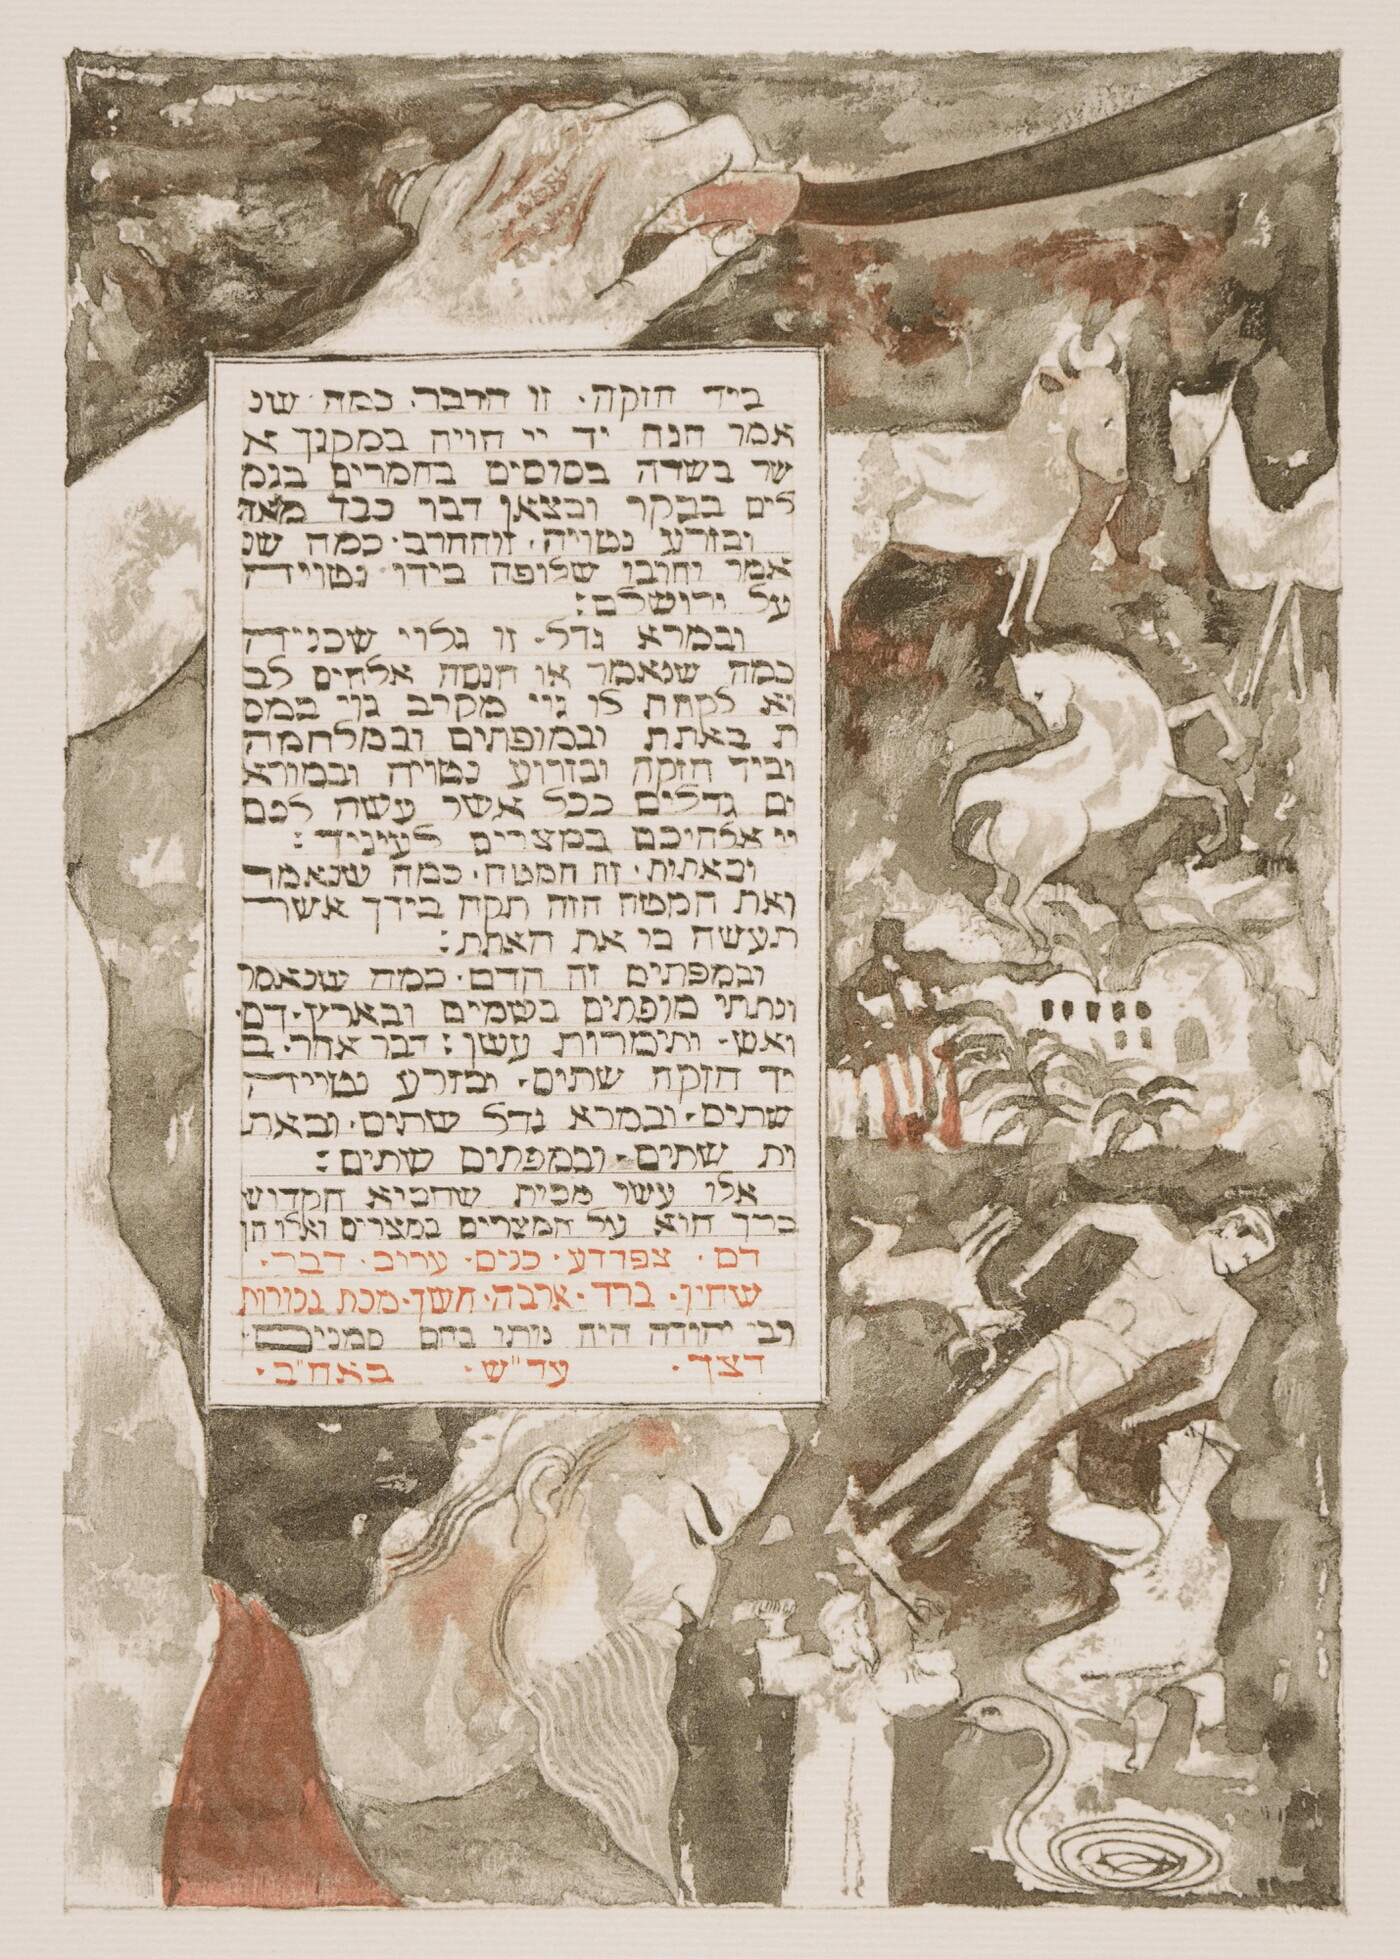 ביד חזקה · זו הדבר · כמה שנ
אמר הנה יד יי הויה במקנך א
שר בשדה בסוסים בחמרים בגמ
לים בבקר ובצאן דבר כבד מאד
ובזרע נטויה · זו החרב · כמה שנ
אמר וחרבו שלופה בידו נטויה
על ירושלם:
ובמרא גדל · זו גלוי שכינה
כמה שנאמר או הנסה אלהים לב
וא לקחת לו גוי מקרב גוי במס
ת באתת ובמופתים ובמלחמה
וביד חזקה ובזרוע נטויה ובמורא
ים גדלים ככל אשר עשה לכם
יי אלהיכם במצרים לעיניך:
ובאתות · זה המטה · כמה שנאמר
ואת המטה הזה תקח בידך אשר
תעשה בו את האתת:
ובמפתים זה הדם · כמה שנאמר
ונתתי מופתים בשמים ובארץ · דם ·
ואש · ותימרות עשן: דבר אחר · ב
יד חזקה שתים · ובזרע נטויה
שתים · ובמרא גדל שתים · ובאת
ות שתים · ובמפתים שתים:
אלו עשר מכות שהביא הקדוש
ברך הוא על המצרים במצרים ואלו הן
דם · צפרדע · כנים · ערוב · דבר ·
שחין · ברד · ארבה · חשך · מכת בכורות
רבי יהודה היה נותן בהם סמנים ·
דצך · עד"ש · באח"ב ·